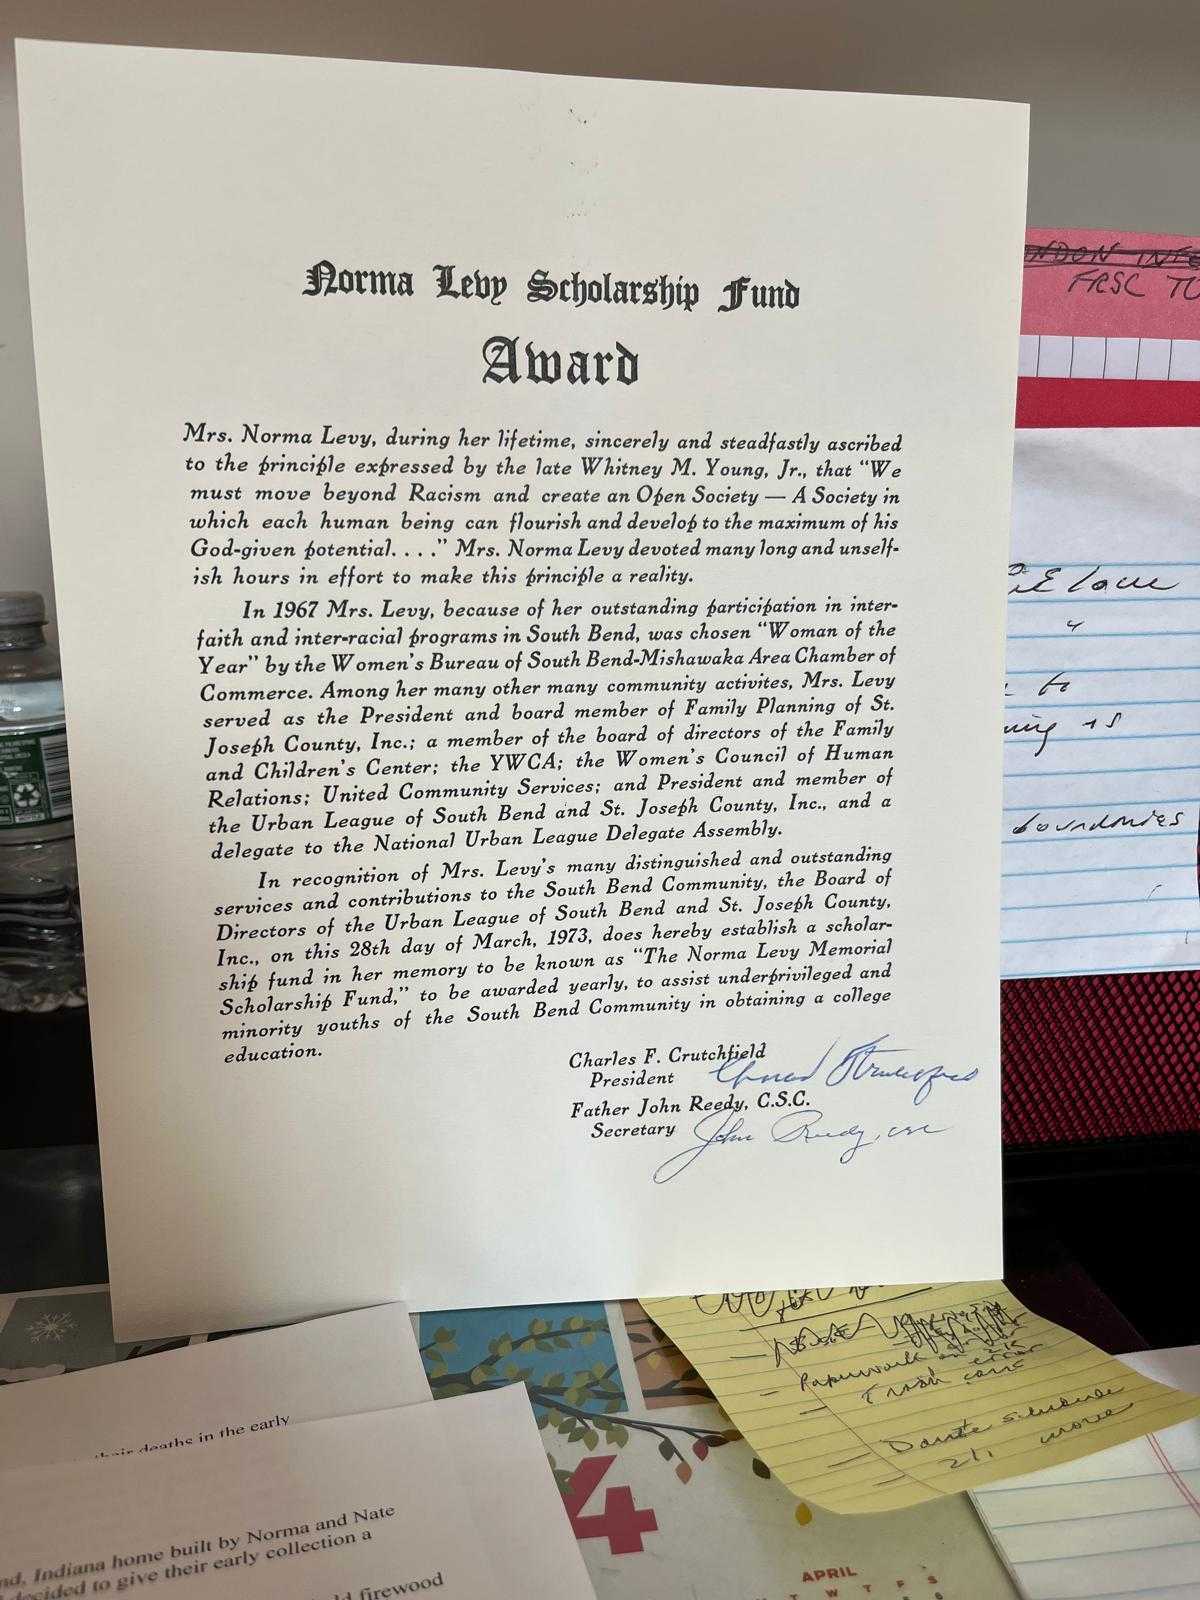 Norma Levy Scholarship Fund
Award
Mrs. Norma Levy, during her lifetime, sincerely and steadfastly ascribed
to the principle expressed by the late Whitney M. Young, Jr., that “We
must move beyond Racism and create an Open Society — A Society in
which each human being can flourish and develop to the maximum of his
God-given potential. . . .” Mrs. Norma Levy devoted many long and unself-
ish hours in effort to make this principle a reality.
In 1967 Mrs. Levy, because of her outstanding participation in inter-
faith and inter-racial programs in South Bend, was chosen “Woman of the
Year” by the Women’s Bureau of South Bend-Mishawaka Area Chamber of
Commerce. Among her many other many community activites, Mrs. Levy
served as the President and board member of Family Planning of St.
Joseph County, Inc.; a member of the board of directors of the Family
and Children’s Center; the YWCA; the Women’s Council of Human
Relations; United Community Services; and President and member of
the Urban League of South Bend and St. Joseph County, Inc., and a
delegate to the National Urban League Delegate Assembly.
In recognition of Mrs. Levy’s many distinguished and outstanding
services and contributions to the South Bend Community, the Board of
Directors of the Urban League of South Bend and St. Joseph County,
Inc., on this 28th day of March, 1973, does hereby establish a scholar-
ship fund in her memory to be known as “The Norma Levy Memorial
Scholarship Fund,” to be awarded yearly, to assist underprivileged and
minority youths of the South Bend Community in obtaining a college
education.
Charles F. Crutchfield
President
Father John Reedy, C.S.C.
Secretary John Reedy, csc
FRSC
boundries
Paperwork
Trash
2/1
their deaths in the early
Indiana home built by Norma and Nate
decided to give their early collection a
firewood
4
APRIL
T W T F S